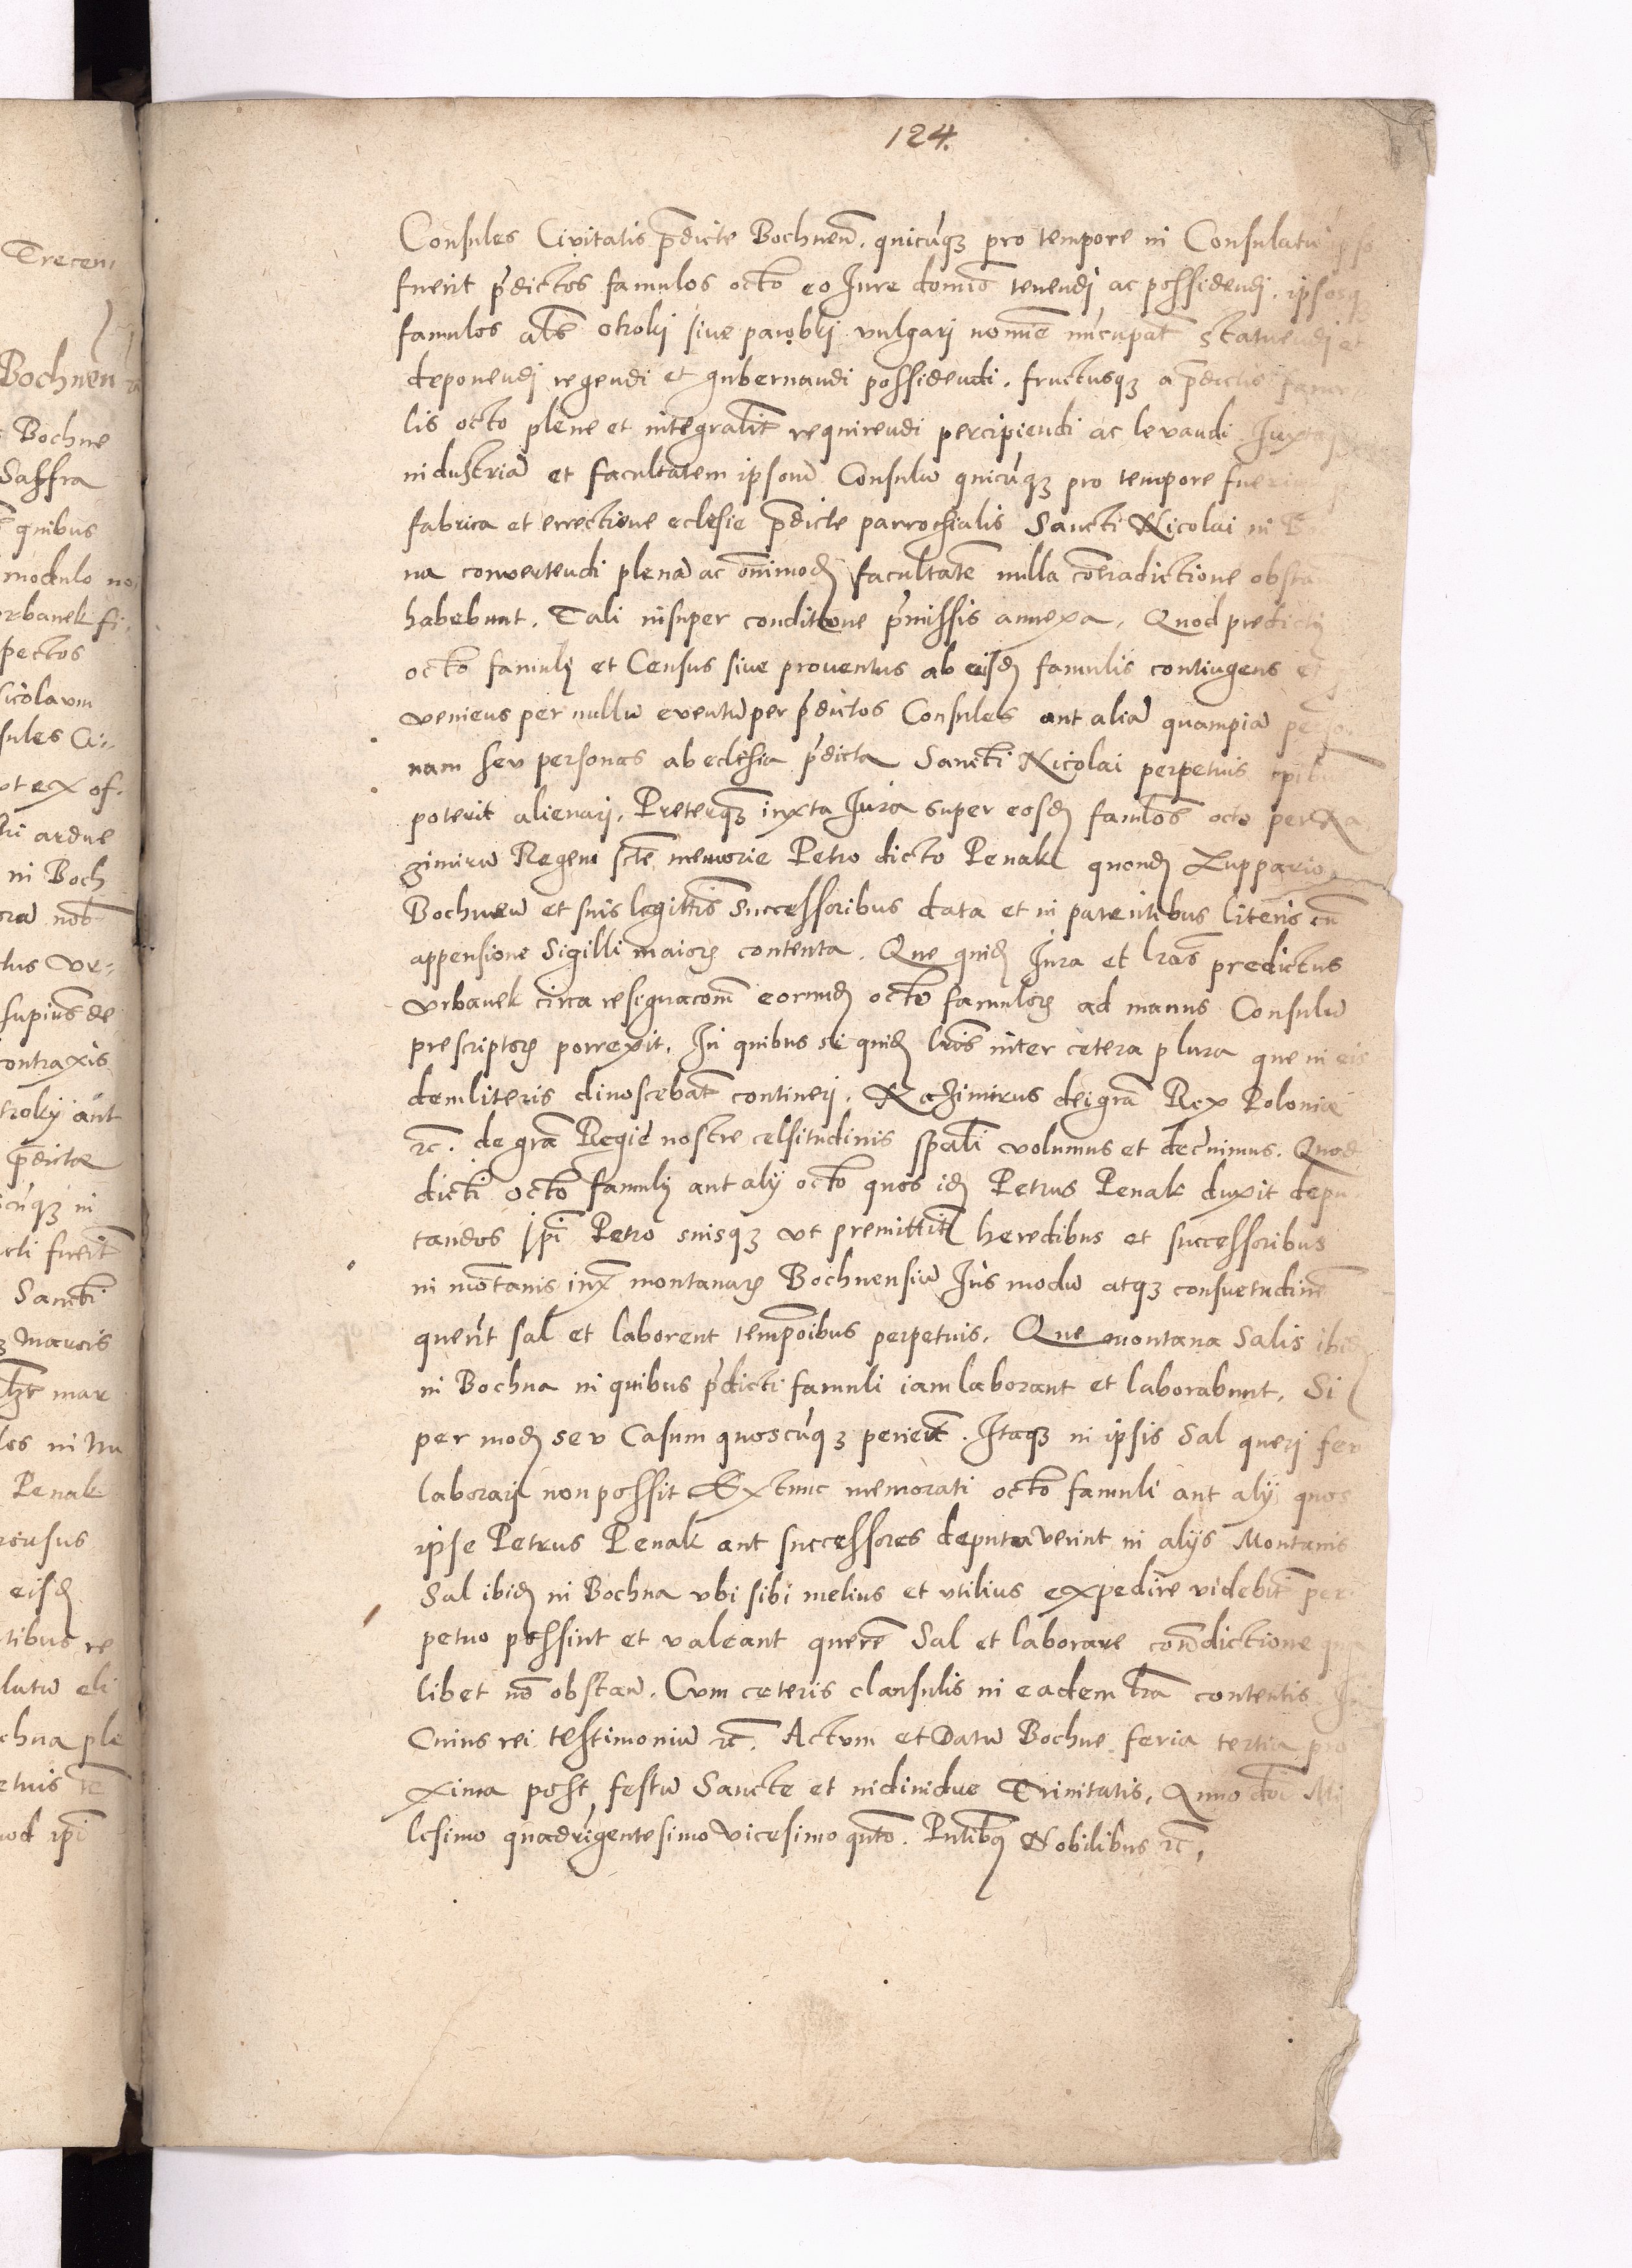 124.
Consules Civitatis p̄dicte Bochnen̄. quicūqȝ pro tempore in Consulatu ipso
fuerit p̄dictos famulos octo eo Iure domīo tenendi ac possidendi. ipsosqȝ
famulos al̄s otroki sive parobki vulgari nomīe nūcupat̄ statuendi et
deponendi regendi et gubernandi possidendi. fructusqȝ a p̄dictis famu
lis octo plene et integralit̄ requirendi percipiendi ac levandi Iuxta
industriā et facultatem ipsorū Consulū quicūqȝ pro tempore fuerint
fabrica et errectione eclesie p̄dicte parrochialis Sancti Nicolai in Bo
na convertendi plenā ac om̄imodā facultatē nulla cōtradictione obsta
habebunt. Tali insuper conditione p̄missis annexa, Quod predicti
octo famuli et Census sive proventus ab eisdē famulis contingens et
veniens per nullū eventū per p̄dictos Consules aut aliā quampiā perso
nam seu personas ab eclesia p̄dicta Sancti Nicolai perpetuis tp̄ibus
poterit alienari, Preterqȝ iuxta Iura super eosdē famlōs octo per Ka
zimirū Regem sctē memorie Petro dicto Penak quondā Luppario
Bochnen̄ et suis legittīs Successoribus data et in patentibus literis cū
appensione Sigilli maioris contenta. Que quidē Iura et lr̄as predictus
Vrbanek circa resignacōm̄ eorundē octo famulorȝ ad manus Consulū
prescriptorȝ porrexit. In quibus si quidē lr̄is inter cetera plura que in eis
dem literis dinoscebat̄ contineri. Kazimirus dei gr̄a Rex Polonie
ꝛc̄. de gr̄a Regie nostre celsitudinis sp̄ali volumus et decr̄nimus. Quod
dicti octo famuli aut alij octo quos idē Petrus Penak duxit depu
tandos Ip̄i Petro suisqȝ vt premittit̄ heredibus et successoribus
in mōtanis iux̄ montanarȝ Bochnensiū Iūs modū atqȝ consuetudinē
quer̄t sal et laborent tempōibus perpetuis. Que montana Salis ibidē
in Bochna in quibus p̄dicti famuli iam laborant et laborabunt, Si
per modū seu Casum quoscūqȝ perier̄t. Itaqȝ in ipsis Sal queri seu
laborari non possit Extunc memorati octo famuli aut alij quos
ipse Petrus Penak aut successores deputaverint in alijs Montanis
Sal ibidē in Bochna vbi sibi melius et vtilius expedire videbit̄ per
petuo possint et valeant querē Sal et laborare con̄dictione qua
libet nō obstan̄. Cum ceteris clausulis in eadem lr̄a contentis. In
Cuius rei testimoniū ꝛc̄. Actum et Datū Bochne feria tertia pro
xima post festū Sancte et individue Trinitatis, Anno dn̄i Mi
lesimo quadrigentesimo vicesimo qnto. Pn̄tibȝ Nobilibus ꝛc̄,
Trecen
Bochnen
Bochne
Saffra
quibus
modulo no
rbanek fi
pectos
icolaum
sules Ci:
vt ex of.
ardue
in Boch
ora nob̄
tus Vr:
supius de
contraxis
troky aut
p̄dicta
cūqȝ in
fuerit̄
Sancti
ȝ marcis
mar
los in
Penak
eisdē
tibus re
latū eli
chna ple
etuis te
od ip̄i